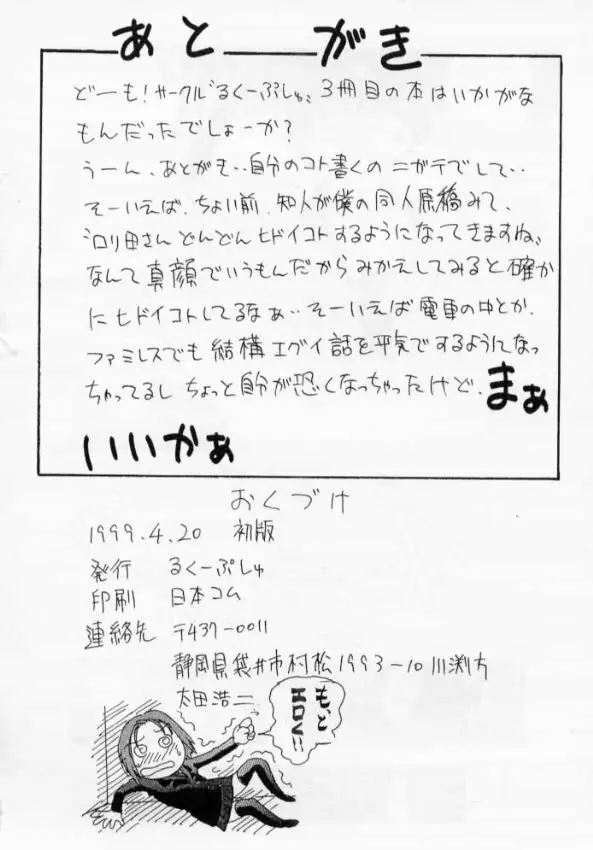 あとがき
どーも!サークル"るくーぷしゅ"、3冊目の本はいかがな
もんだったでしょーか?
うーん、あとがき‥自分のコト書くのニガテでして‥
そーいえば、ちょい前、知人が僕の同人原稿みて、
"ロリ田さんどんどんヒドイコトするようになってきますね"、
なんて真顔でいうもんだからみかえしてみると確か
にヒドイコトしてるなぁ‥そーいえば電車の中とか、
ファミレスでも結構エグイ話を平気でするようになっ
ちゃってるしちょっと自分が恐くなっちゃったけど、まぁ
いいかぁ
おくづけ
1999.4.20 初版
発行 るくーぷしゅ
印刷 日本コム
連絡先 〒437-0011
静岡県袋井市村松1993-10川渕方
太田浩二
もっと